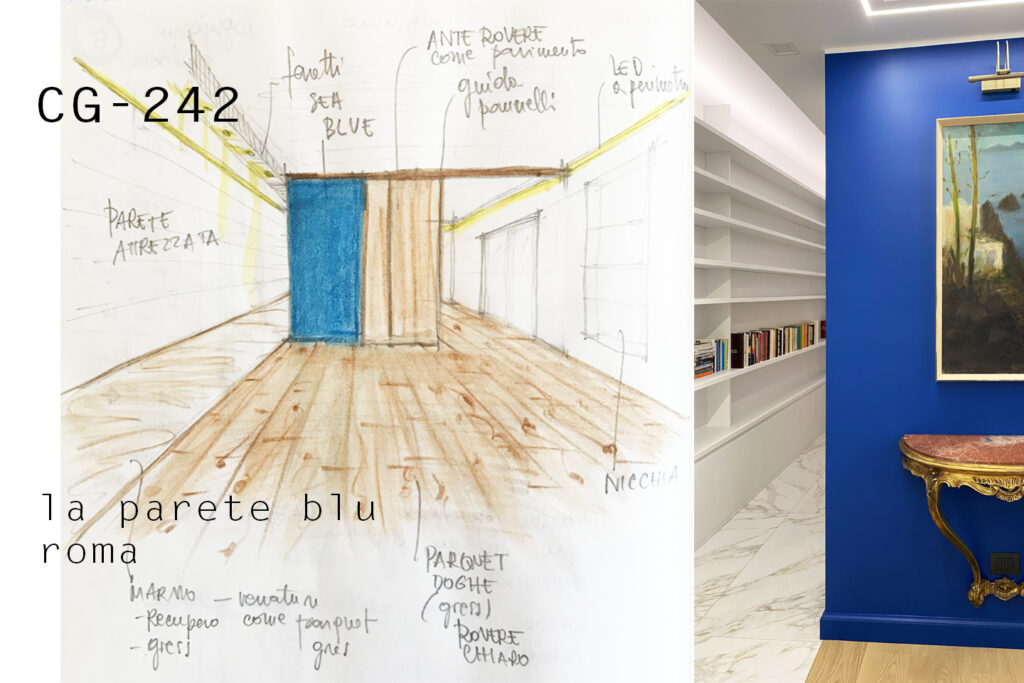 CG-242
faretti
SEA
BLUE
ANTE ROVERE
come pavimento
guida
pannelli
LED
a perimetro
PARETE
ATTREZZATA
NICCHIA
la parete blu
roma
MARMO - venature
-Recupero come parquet
- gres gres
PARQUET
DOGHE
(gres)
ROVERE
CHIARO